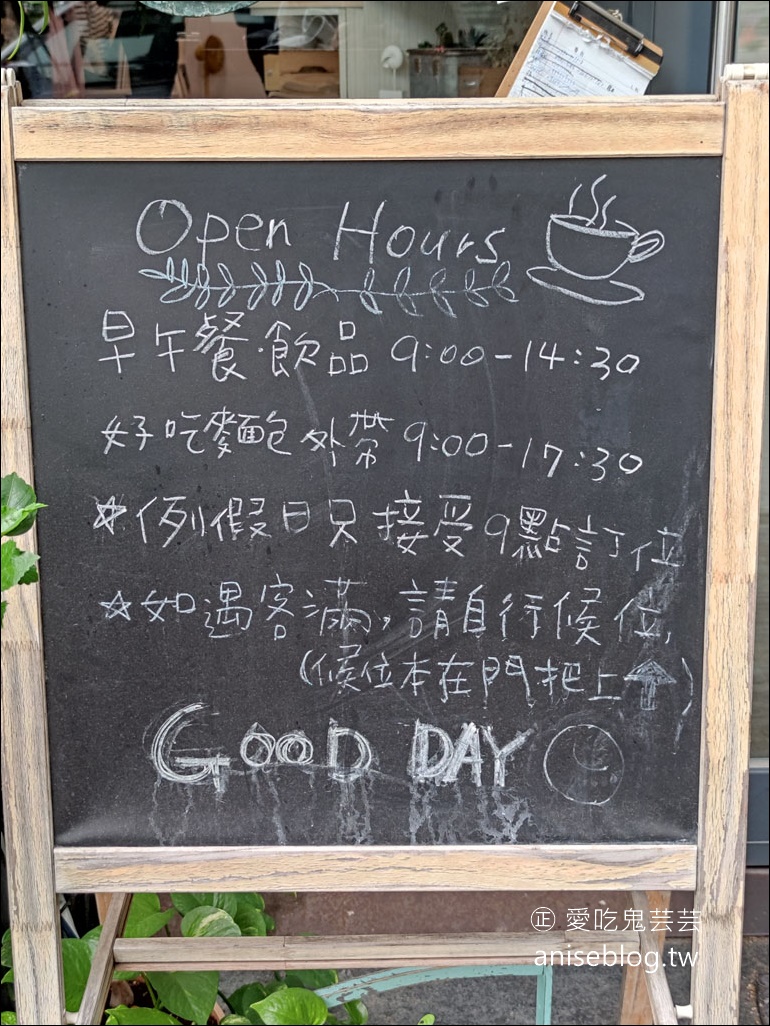 Open Hours
早午餐·飲品 9:00-14:30
好吃麵包外帶 9:00-17:30
☆例假日只接受9點訂位
☆如遇客滿,請自行候位,
(候位本在門把上↑)
GOOD DAY
㊣ 愛吃鬼芸芸
aniseblog.tw